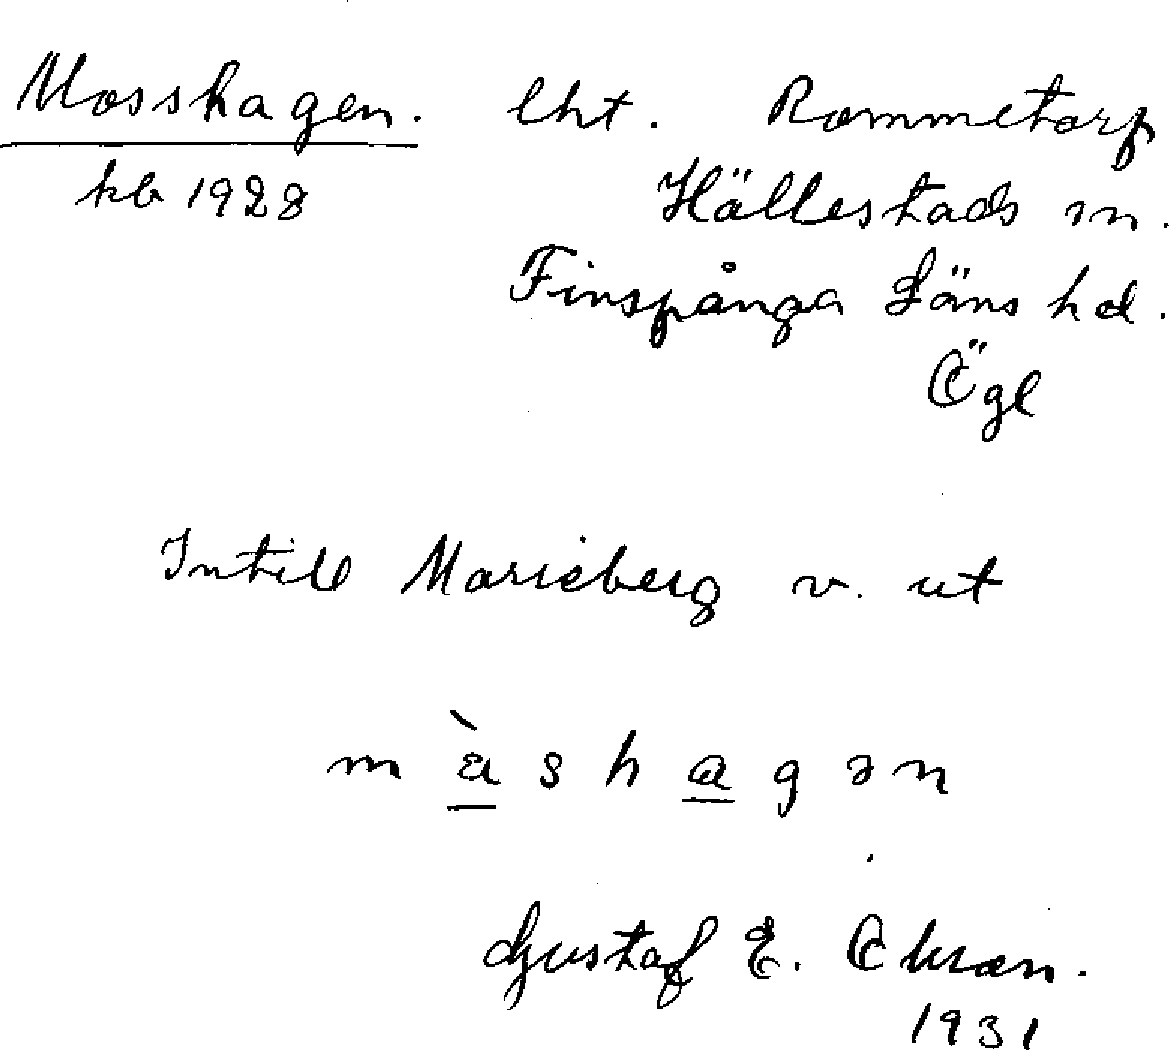 Mosshagen. lht. Rommetorp
kb 1928 Hällestads sn.
Finspånga Läns hd.
Ögl
Intill Marieberg v. ut
m a s h a g ə n
Gustaf E.
1931